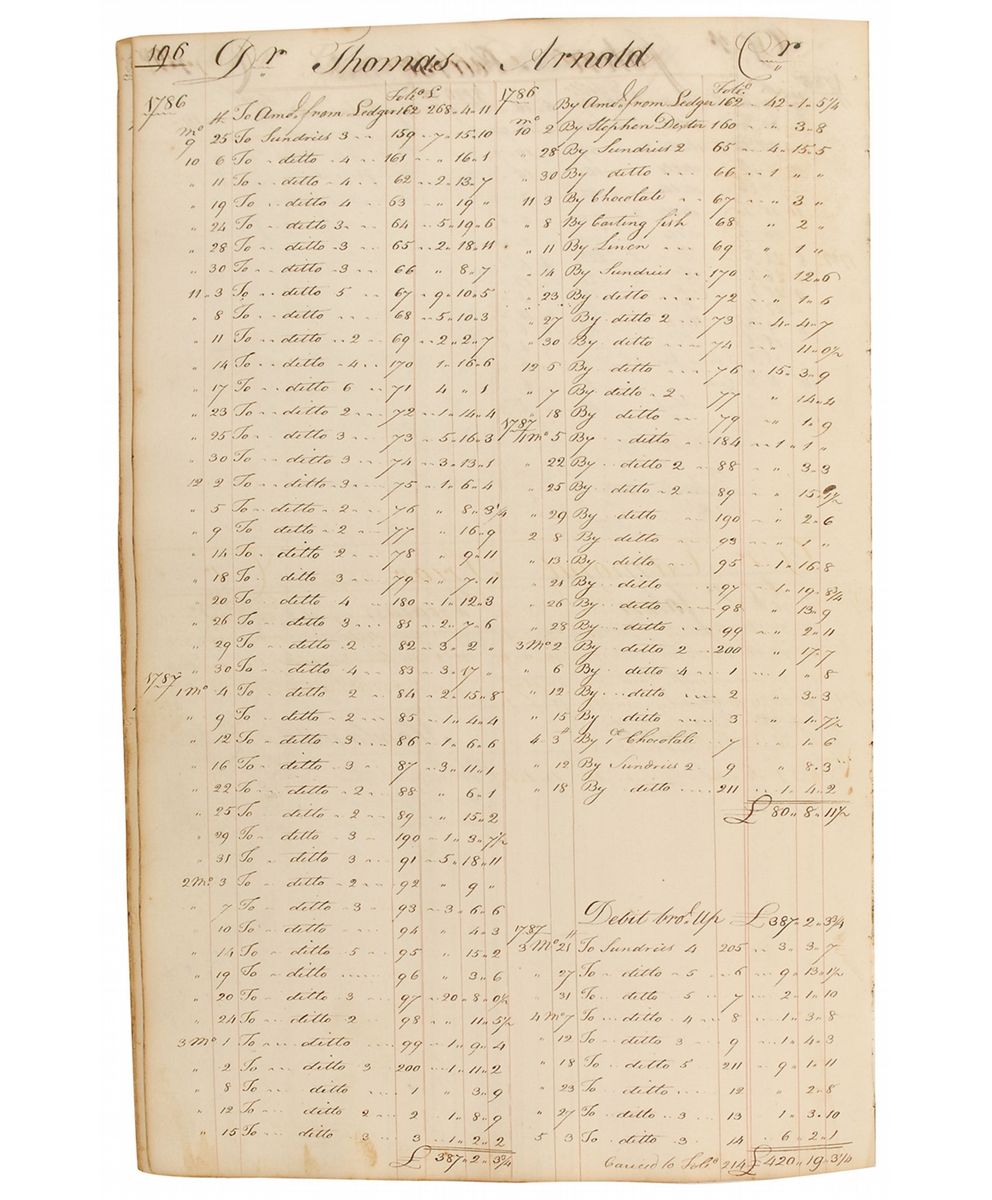 196 Dr Thomas Arnold Cr
1786 Folio £
4 To Amot. from Ledger 162 268 " 4 " 11
mo 9 25 To Sundries 3 159 7 " 15 " 10
10 6 To ditto 4 161 " 16 " 1
" 11 To ditto 4 62 2 " 13 " 7
" 19 To ditto 4 63 " 19 "
" 24 To ditto 3 64 5 " 19 " 6
" 28 To ditto 3 65 2 " 18 " 11
" 30 To ditto 3 66 " 8 " 7
11 3 To ditto 5 67 9 " 10 " 5
" 8 To ditto 68 5 " 10 " 3
" 11 To ditto 2 69 2 " 2 " 7
" 14 To ditto 4 170 1 " 16 " 6
" 17 To ditto 6 71 4 " 1
" 23 To ditto 2 72 1 " 14 " 4
" 25 To ditto 3 73 5 " 16 " 3
" 30 To ditto 3 74 3 " 13 " 1
12 2 To ditto 3 75 1 " 6 " 4
" 5 To ditto 2 76 " 8 " 3 1/4
" 9 To ditto 2 77 " 16 " 9
" 14 To ditto 2 78 " 9 " 11
" 18 To ditto 3 79 " 7 " 11
" 20 To ditto 4 180 1 " 12 " 3
" 26 To ditto 3 81 2 " 7 " 6
" 29 To ditto 2 82 3 " 2 "
" 30 To ditto 4 83 3 " 17 "
1787
1 Mo 4 To ditto 2 84 2 " 15 " 8
" 9 To ditto 2 85 1 " 4 " 4
" 12 To ditto 3 86 1 " 6 " 6
" 16 To ditto 3 87 3 " 11 " 1
" 22 To ditto 2 88 " 6 " 1
" 25 To ditto 2 89 " 15 " 2
" 29 To ditto 3 190 1 " 3 " 7 1/2
" 31 To ditto 3 91 5 " 18 " 11
2 Mo 3 To ditto 2 92 " 9 "
" 7 To ditto 3 93 3 " 6 " 6
" 10 To ditto 94 " 4 " 3
" 14 To ditto 5 95 " 15 " 2
" 19 To ditto 96 " 3 " 6
" 20 To ditto 3 97 20 " 8 " 0 1/2
" 24 To ditto 2 98 " 11 " 5 1/2
3 Mo 1 To ditto 99 1 " 9 " 4
" 2 To ditto 3 200 1 " 11 " 2
" 8 To ditto 1 " 3 " 9
" 12 To ditto 2 2 1 " 8 " 9
" 15 To ditto 3 3 1 " 2 " 2
£ 387 " 2 " 3 3/4
1786 Folio
By Amot. from Ledger 162 42 " 1 " 5 1/4
mo 10 2 By Stephen Dexter 160 " 3 " 8
" 28 By Sundries 2 65 4 " 15 " 5
" 30 By ditto 66 1 " "
11 3 By Chocolate 67 " 3 "
" 8 By Carting fish 68 " 2 "
" 11 By Linen 69 " 1 "
" 14 By Sundries 170 " 12 " 6
" 23 By ditto 72 " 1 " 6
" 27 By ditto 2 73 4 " 4 " 7
" 30 By ditto 74 " 11 " 0 1/2
12 5 By ditto 76 15 " 3 " 9
" 7 By ditto 2 77 " 14 " 2
" 18 By ditto 79 " 1 " 9
1787
1 Mo 5 By ditto 184 1 " 1 "
" 22 By ditto 2 88 " 3 " 3
" 25 By ditto 2 89 " 15
" 29 By ditto 190 " 2 " 6
2 8 By ditto 93 " 1 "
" 13 By ditto 95 1 " 16 " 8
" 21 By ditto 97 1 " 19 " 8 3/4
" 26 By ditto 98 " 13 " 9
" 28 By ditto 99 " 2 " 11
3 Mo 2 By ditto 2 200 " 17 " 7
" 6 By ditto 4 1 1 " " 8
" 12 By ditto 2 " 3 " 3
" 15 By ditto 3 " 1 " 7 1/2
4 3 By Chocolate 7 " 1 " 6
" 12 By Sundries 2 9 " 8 " 3
" 18 By ditto 211 1 " 4 " 2
£ 80 " 8 " 11 1/2
Debit bro.t Up £ 387 " 2 " 3 3/4
1787
3 Mo 21 To Sundries 4 205 3 " 3 " 7
" 27 To ditto 5 6 9 " 13 " 1 1/2
" 31 To ditto 5 7 2 " 1 " 10
4 Mo 7 To ditto 4 8 1 " 3 " 8
" 12 To ditto 3 9 1 " 4 " 3
" 18 To ditto 5 211 9 " 1 " 11
" 23 To ditto 12 " 2 " 8
" 27 To ditto 3 13 1 " 3 " 10
5 3 To ditto 3 14 6 " 2 " 1
Carried to Folio 214 £420 " 19 " 3 1/4